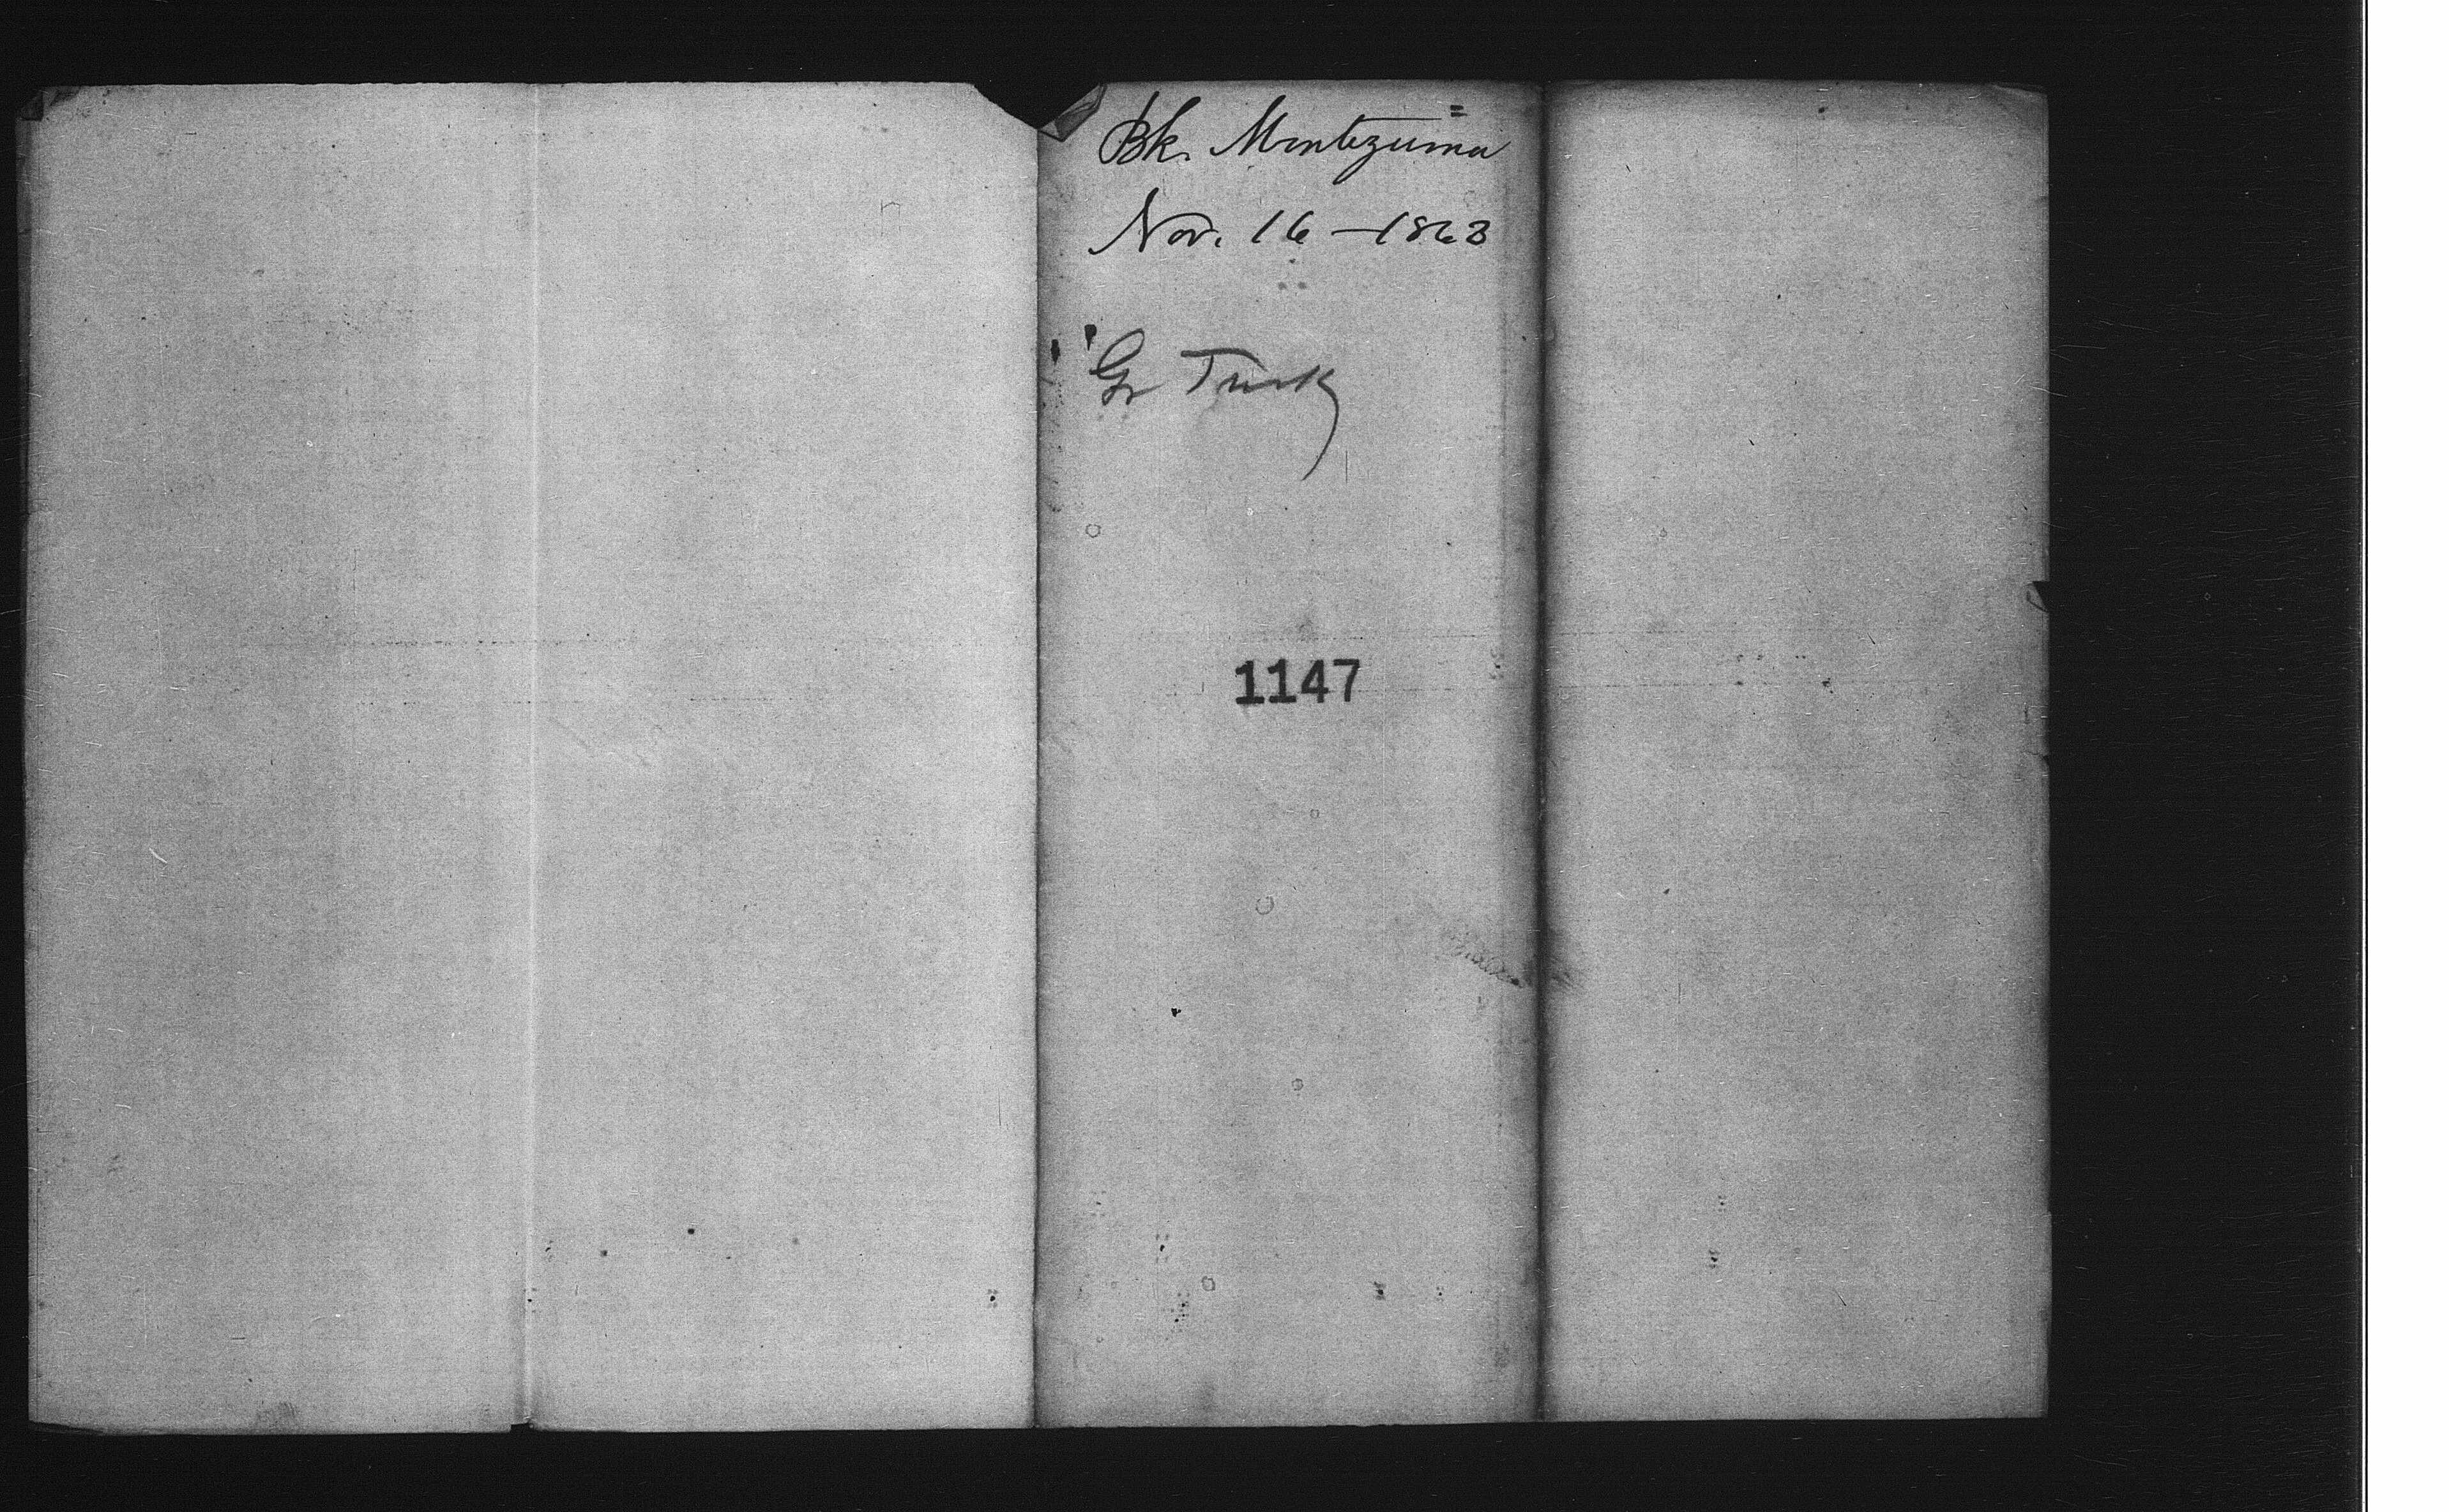 Bk. Montezuma
Nov. 16 – 1863
Gr Turk
1147